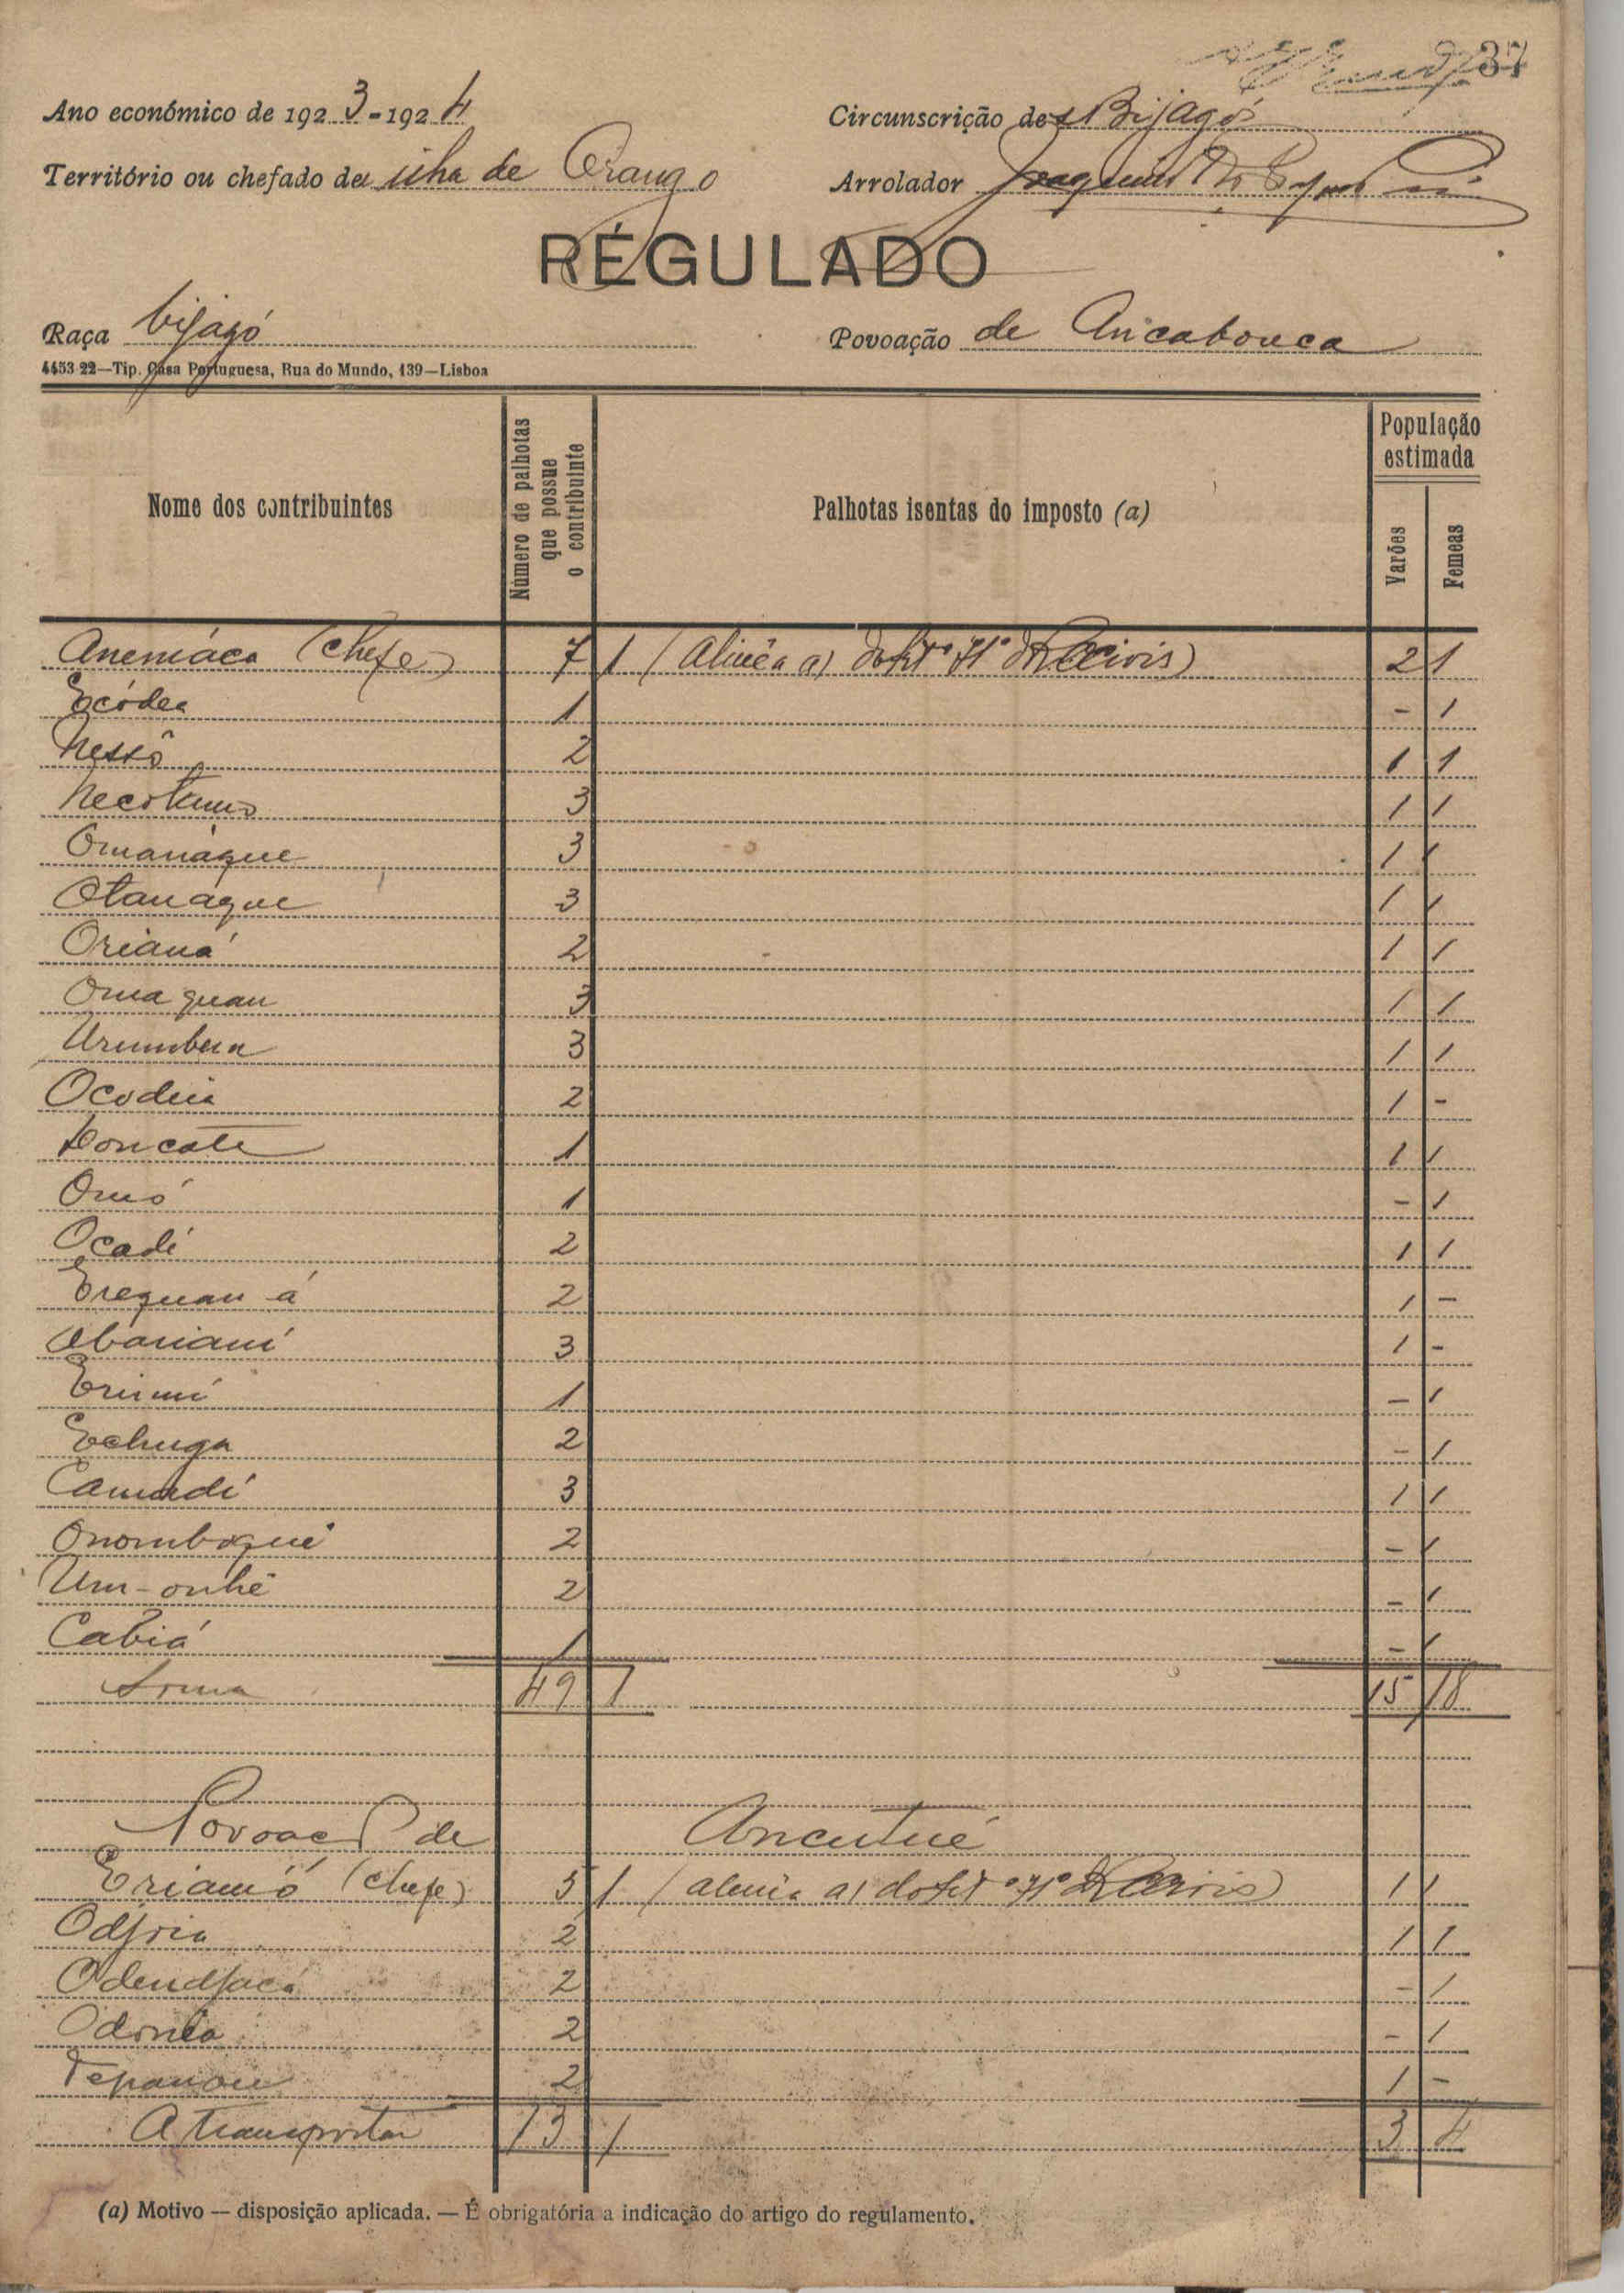 37
Ano económico de 1923-1924 Circunscrição dos Bijagós
Território ou chefado da ilha de Orango Arrolador Joaquim
RÉGULADO
Raça bijagó Povoação de Ancabouca
4453-22—Tip. Casa Portuguesa, Rua do Mundo, 139—Lisboa
Nome dos contribuintes Número de palhotas que possue o contribuinte Palhotas isentas do imposto (a) População estimada Varões Femeas
Anemáca (chefe) 7 1 (alinea a) do Civis) 2 1
Ecódea 1 - 1
Nessô 2 1 1
Necotum 3 1 1
Omanáque 3 1 1
Otanáque 3 1 1
Orianá 2 1 1
Omaquan 3 1 1
Urumbua 3 1 1
Ocodui 2 1 -
Doncate 1 1 1
Omó 1 - 1
Ocadí 2 1 1
Erequan-á 2 1 -
Obarianí 3 1 -
1 - 1
Echuga 2 - 1
Camudí 3 1 1
Onomboqué 2 - 1
Um-onhê 2 - 1
Cabiá 1 - 1
Soma 49 1 15 18
Povoação de Ancutué
Eriamó (chefe) 5 1 (alinea a) do Civis) 1 1
Odjria 2 1 1
Odendjacá 2 - 1
Odonla 2 - 1
2 1 -
A transportar 13 1 3 4
(a) Motivo — disposição aplicada. — É obrigatória a indicação do artigo do regulamento.